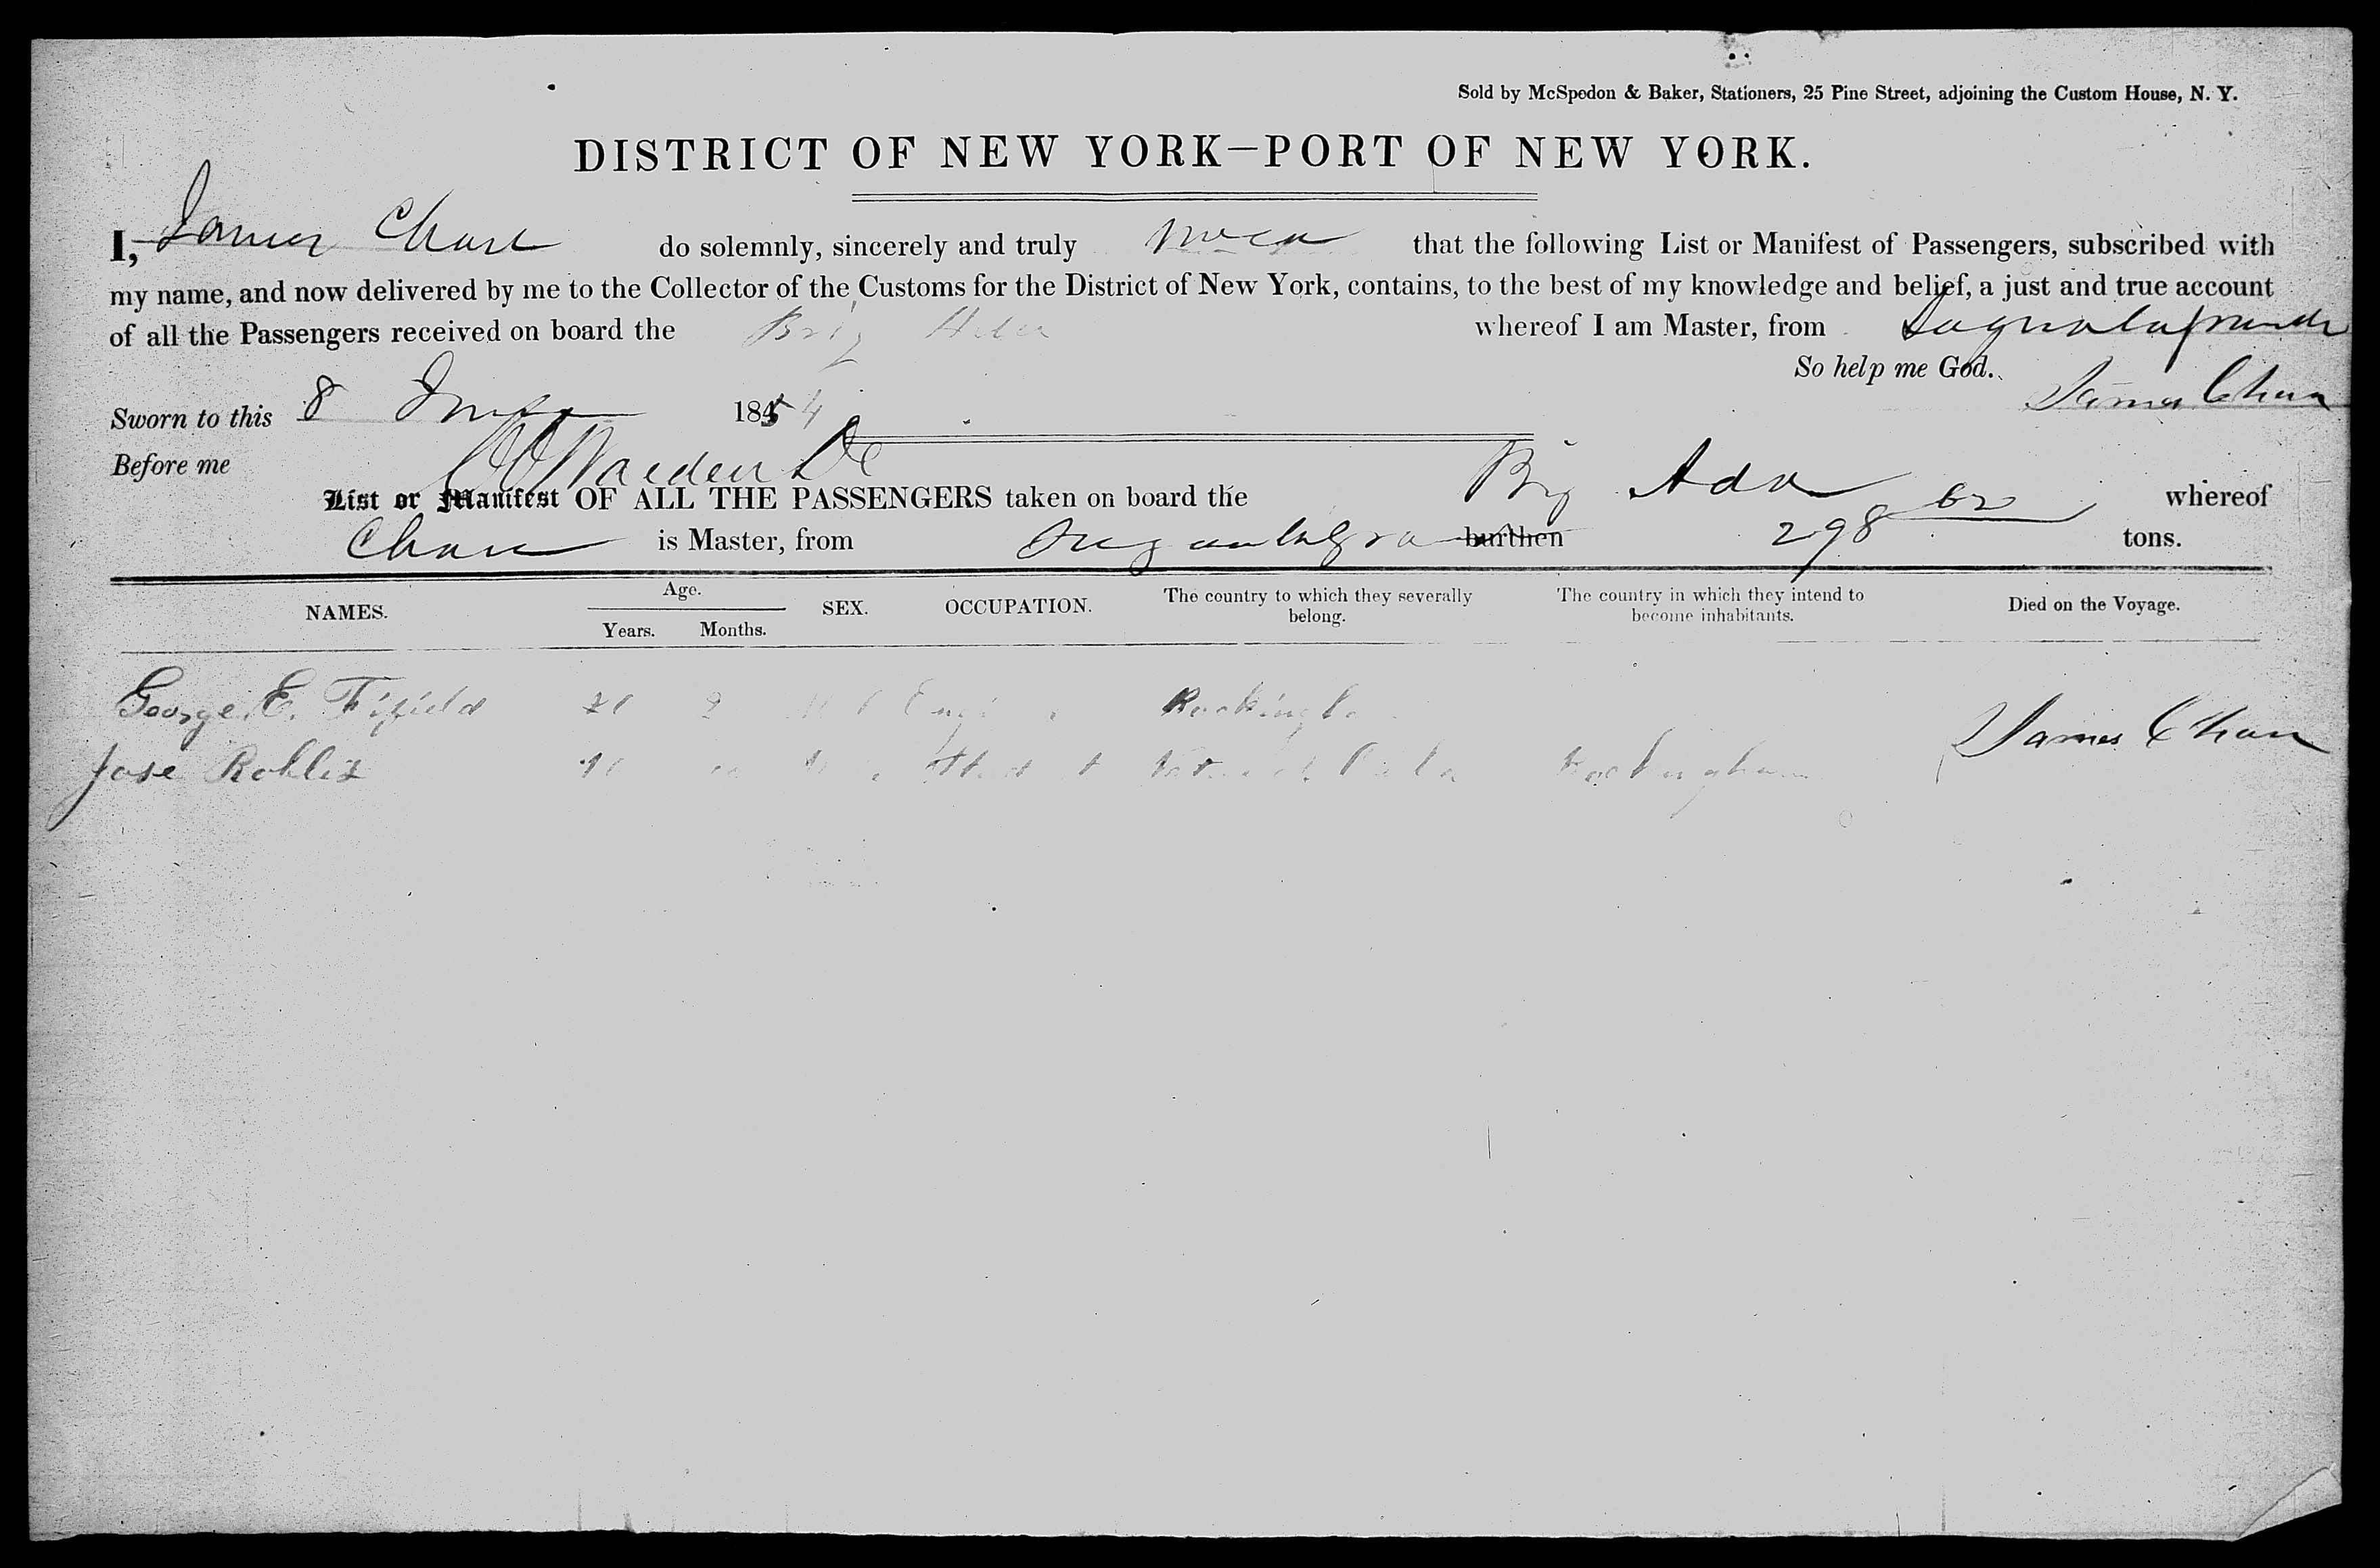 Sold by McSpedon & Baker, Stationers, 25 Pine Street, adjoining the Custom House, N. Y.
DISTRICT OF NEW YORK—PORT OF NEW YORK.
I, James Chase do solemnly, sincerely and truly swear that the following List or Manifest of Passengers, subscribed with
my name, and now delivered by me to the Collector of the Customs for the District of New York, contains, to the best of my knowledge and belief, a just and true account
of all the Passengers received on board the Brig whereof I am Master, from Sagualagrande
So help me God. James Chase
Sworn to this 8 1854
Before me
List or Manifest OF ALL THE PASSENGERS taken on board the Brig Ada whereof
Chase is Master, from burthen 298 62 tons.
NAMES. Age. Years. Months. SEX. OCCUPATION. The country to which they severally belong. The country in which they intend to become inhabitants. Died on the Voyage.
George E. Fifield Rockingh
Jose Robliz Rockingham
James Chase